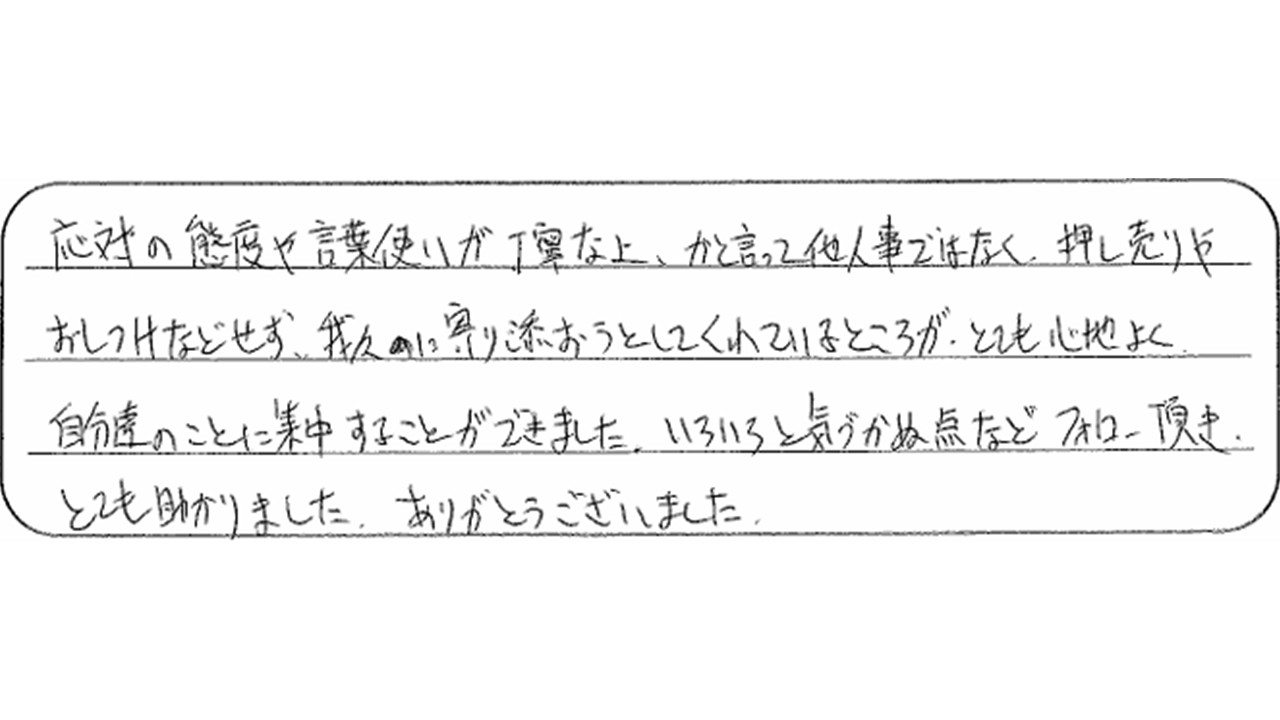 応対の態度や言葉使いが丁寧な上、かと言って他人事ではなく、押し売りや
おしつけなどせず、我々に寄り添おうとしてくれているところが、とても心地よく、
自分達のことに集中することができました。いろいろと気づかぬ点などフォロー頂き、
とても助かりました。ありがとうございました。